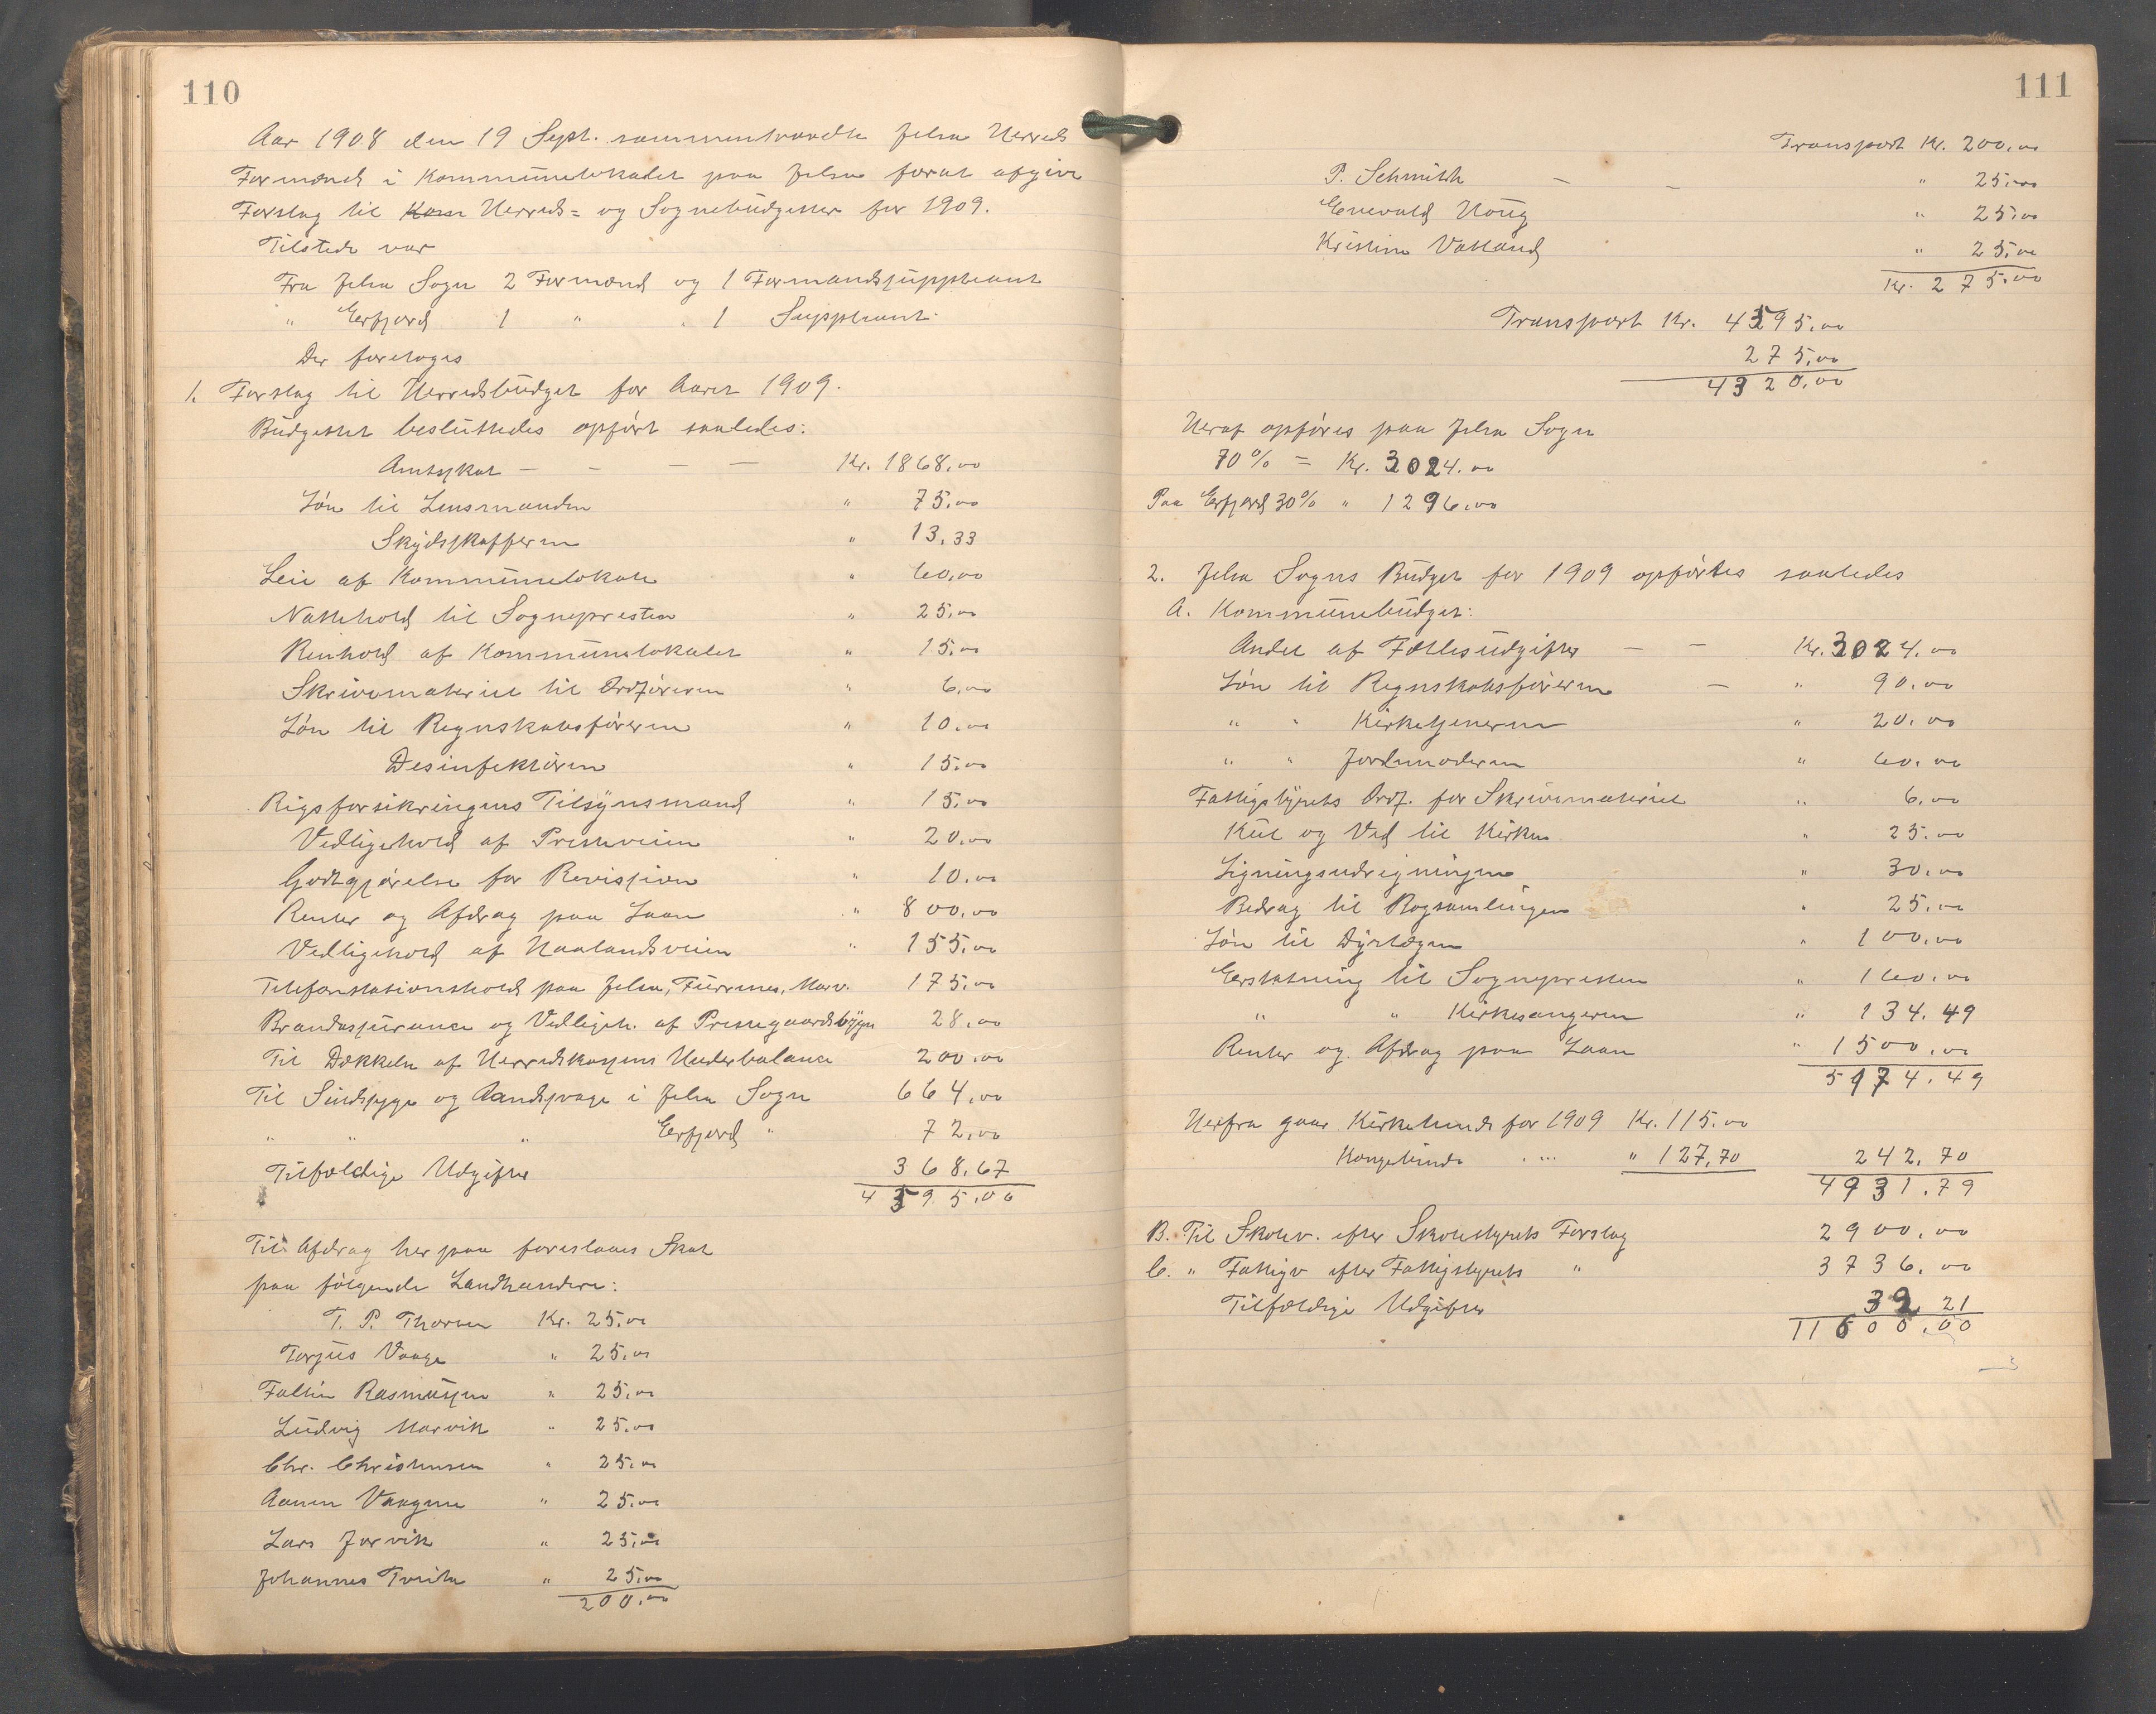 110
Aar 1908 den 19 Sept. sammentraadte Jelsa Herreds
Formænd i Kommunelokalet paa Jelsa forat afgive
Forslag til Herreds= og Sognebudgetter for 1909.
Tilstede var
Fra Jelsa Sogn 2 Formænd og 1 Formandssuppleant
" Erfjord 1 " " 1 Suppleant.
Der foretoges
1. Forslag til Herredsbudget for Aaret 1909.
Budgettet besluttedes opført saaledes:
Amtsskat — — — — Kr. 1868,00
Løn til Lensmanden " 75,00
Skydsskafferen " 13,33
Leie af Kommunelokale " 60,00
Nattehold til Sognepresten " 25,00
Renhold af Kommunelokalet " 15,00
Skrivemateriel til Ordføreren " 6,00
Løn til Regnskabsføreren " 10,00
Desinfektøren " 15,00
Rigsforsikringens Tilsynsmand " 15,00
Vedligehold af Presteveien " 20,00
Godtgjørelse for Revisjion " 10,00
Renter og Afdrag paa Laan " 800,00
Vedligehold af Haalandsveien " 155,00
Telefonstationshold paa Jelsa, Furenes, Marv. 175,00
Brandassurance og Vedligeh. af Prestegaardsbygn 28,00
Til Dækkelse af Herredskassens Underbalance 200,00
Til Sindssyge og Aandssvage i Jelsa Sogn 664,00
" " " Erfjord " 72,00
Tilfældige Udgifter 368,67
4595,00
Til Afdrag her paa foreslaaes Skat
paa følgende Landhandlere:
T. P. Thorsen Kr. 25,00
Torjus Vaage " 25,00
Faltin Rasmussen " 25,00
Ludvig Marvik " 25,00
Chr. Christensen " 25,00
Aanen Vaagene " 25,00
Lars Jorvik " 25,00
Johannes Tveita " 25,00
200,00
111
Transport Kr. 200,00
P. Schmidth — — " 25,00
Enevald Houg " 25,00
Kristine Vatland " 25,00
Kr. 275,00
Transport Kr. 4595,00
275,00
4320,00
Heraf opføres paa Jelsa Sogn
70% = Kr. 3024,00
Paa Erfjord 30% " 1296,00
2. Jelsa Sogns Budget for 1909 opførtes saaledes
A. Kommunebudget:
Andel af Fællesudgifter — — Kr. 3024,00
Løn til Regnskabsføreren — " 90,00
" " Kirketjeneren " 20,00
" " Jordmoderen " 60,00
Fattigstyrets Ordf. for Skrivemateriel " 6,00
Kul og Ved til Kirken " 25,00
Ligningsudregningen " 30,00
Bedrag til Bogsamlingen " 25,00
Løn til Dyrlægen " 100,00
Erstatning til Sognepresten " 160,00
" " Kirkesangeren " 134,49
Renter og Afdrag paa Laan " 1500,00
5174,49
Herfra gaar Kirketiende for 1909 Kr. 115,00
Kongetiende " " " 127,70 242,70
4931,79
B. Til Skolev. efter Skolestyrets Forslag 2900,00
C. " Fattigv efter Fattigstyrets " 3736,00
Tilfældige Udgifter 32,21
11600,00